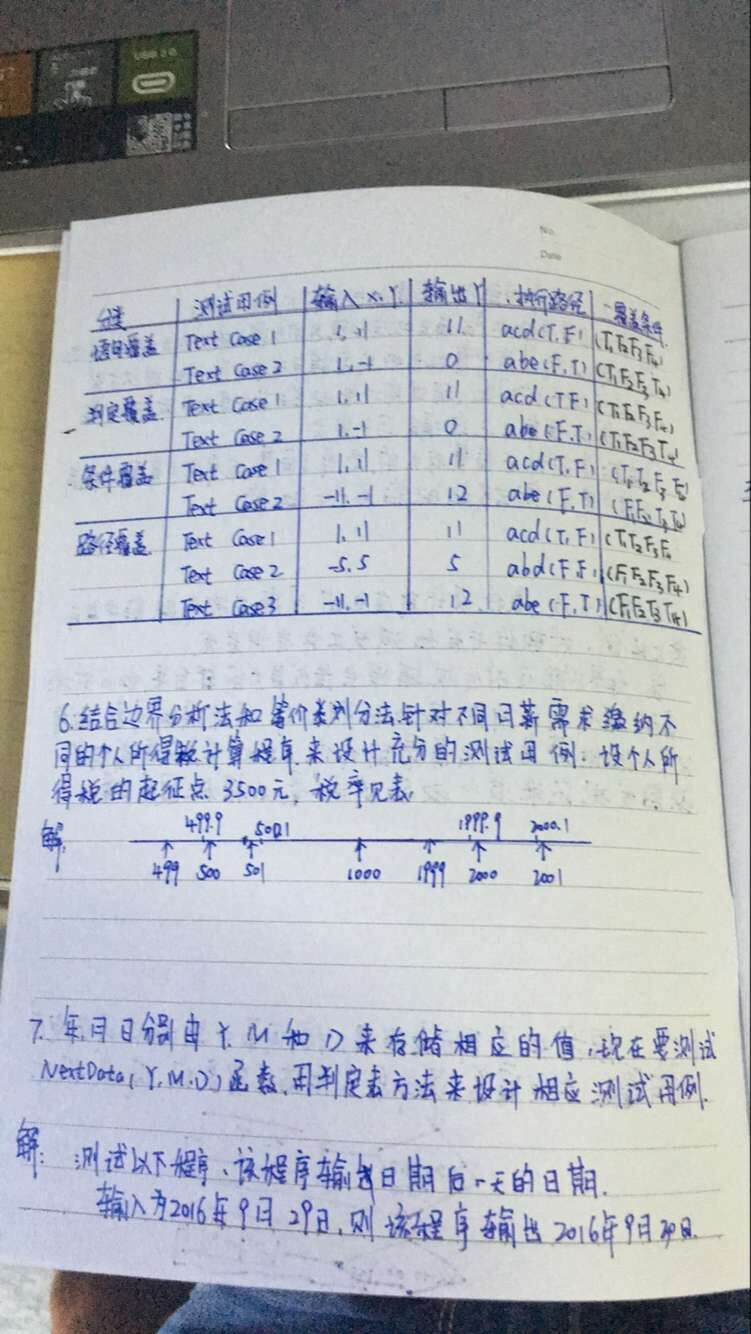 No.
Date
分类 测试用例 输入X,Y 输出Y 执行路径 覆盖条件
语句覆盖 Text Case 1 1, 11 11 acd(T,F) (T1T2F3F4)
Text Case 2 1,-1 0 abe(F,T) (T1F2F3T4)
判定覆盖 Text Case 1 1,11 11 acd(T F) (T1T2F3F4)
Text Case 2 1,-1 0 abe(F,T) (T1F2F3T4)
条件覆盖 Text Case 1 1,11 11 acd(T,F)
Text Case 2 -11,-1 12 abe(F,T) (F1F2T3T4)
路径覆盖 Text Case 1 1,11 11 acd(T,F) (T1T2F3F4
Text Case 2 -5,5 5 abd(F,F) (F1F2F3F4)
Text Case 3 -11,-1 12 abe(F,T) (F1F2T3T4)
6.结合边界分析法和等价类划分法针对不同月薪需求缴纳不
同的个人所得税计算程序来设计充分的测试用例:设个人所
得税的起征点3500元,税率见表
解: 499.9 500.1 1999.9 2000.1
499 500 501 1000 1999 2000 2001
7.年月日分别由Y,M和D来存储相应的值,现在要测试
NextData(Y,M,D)函数,用判定表方法来设计相应测试用例.
解: 测试以下程序,该程序输出日期后一天的日期.
输入为2016年9月29日,则该程序输出2016年9月30日.